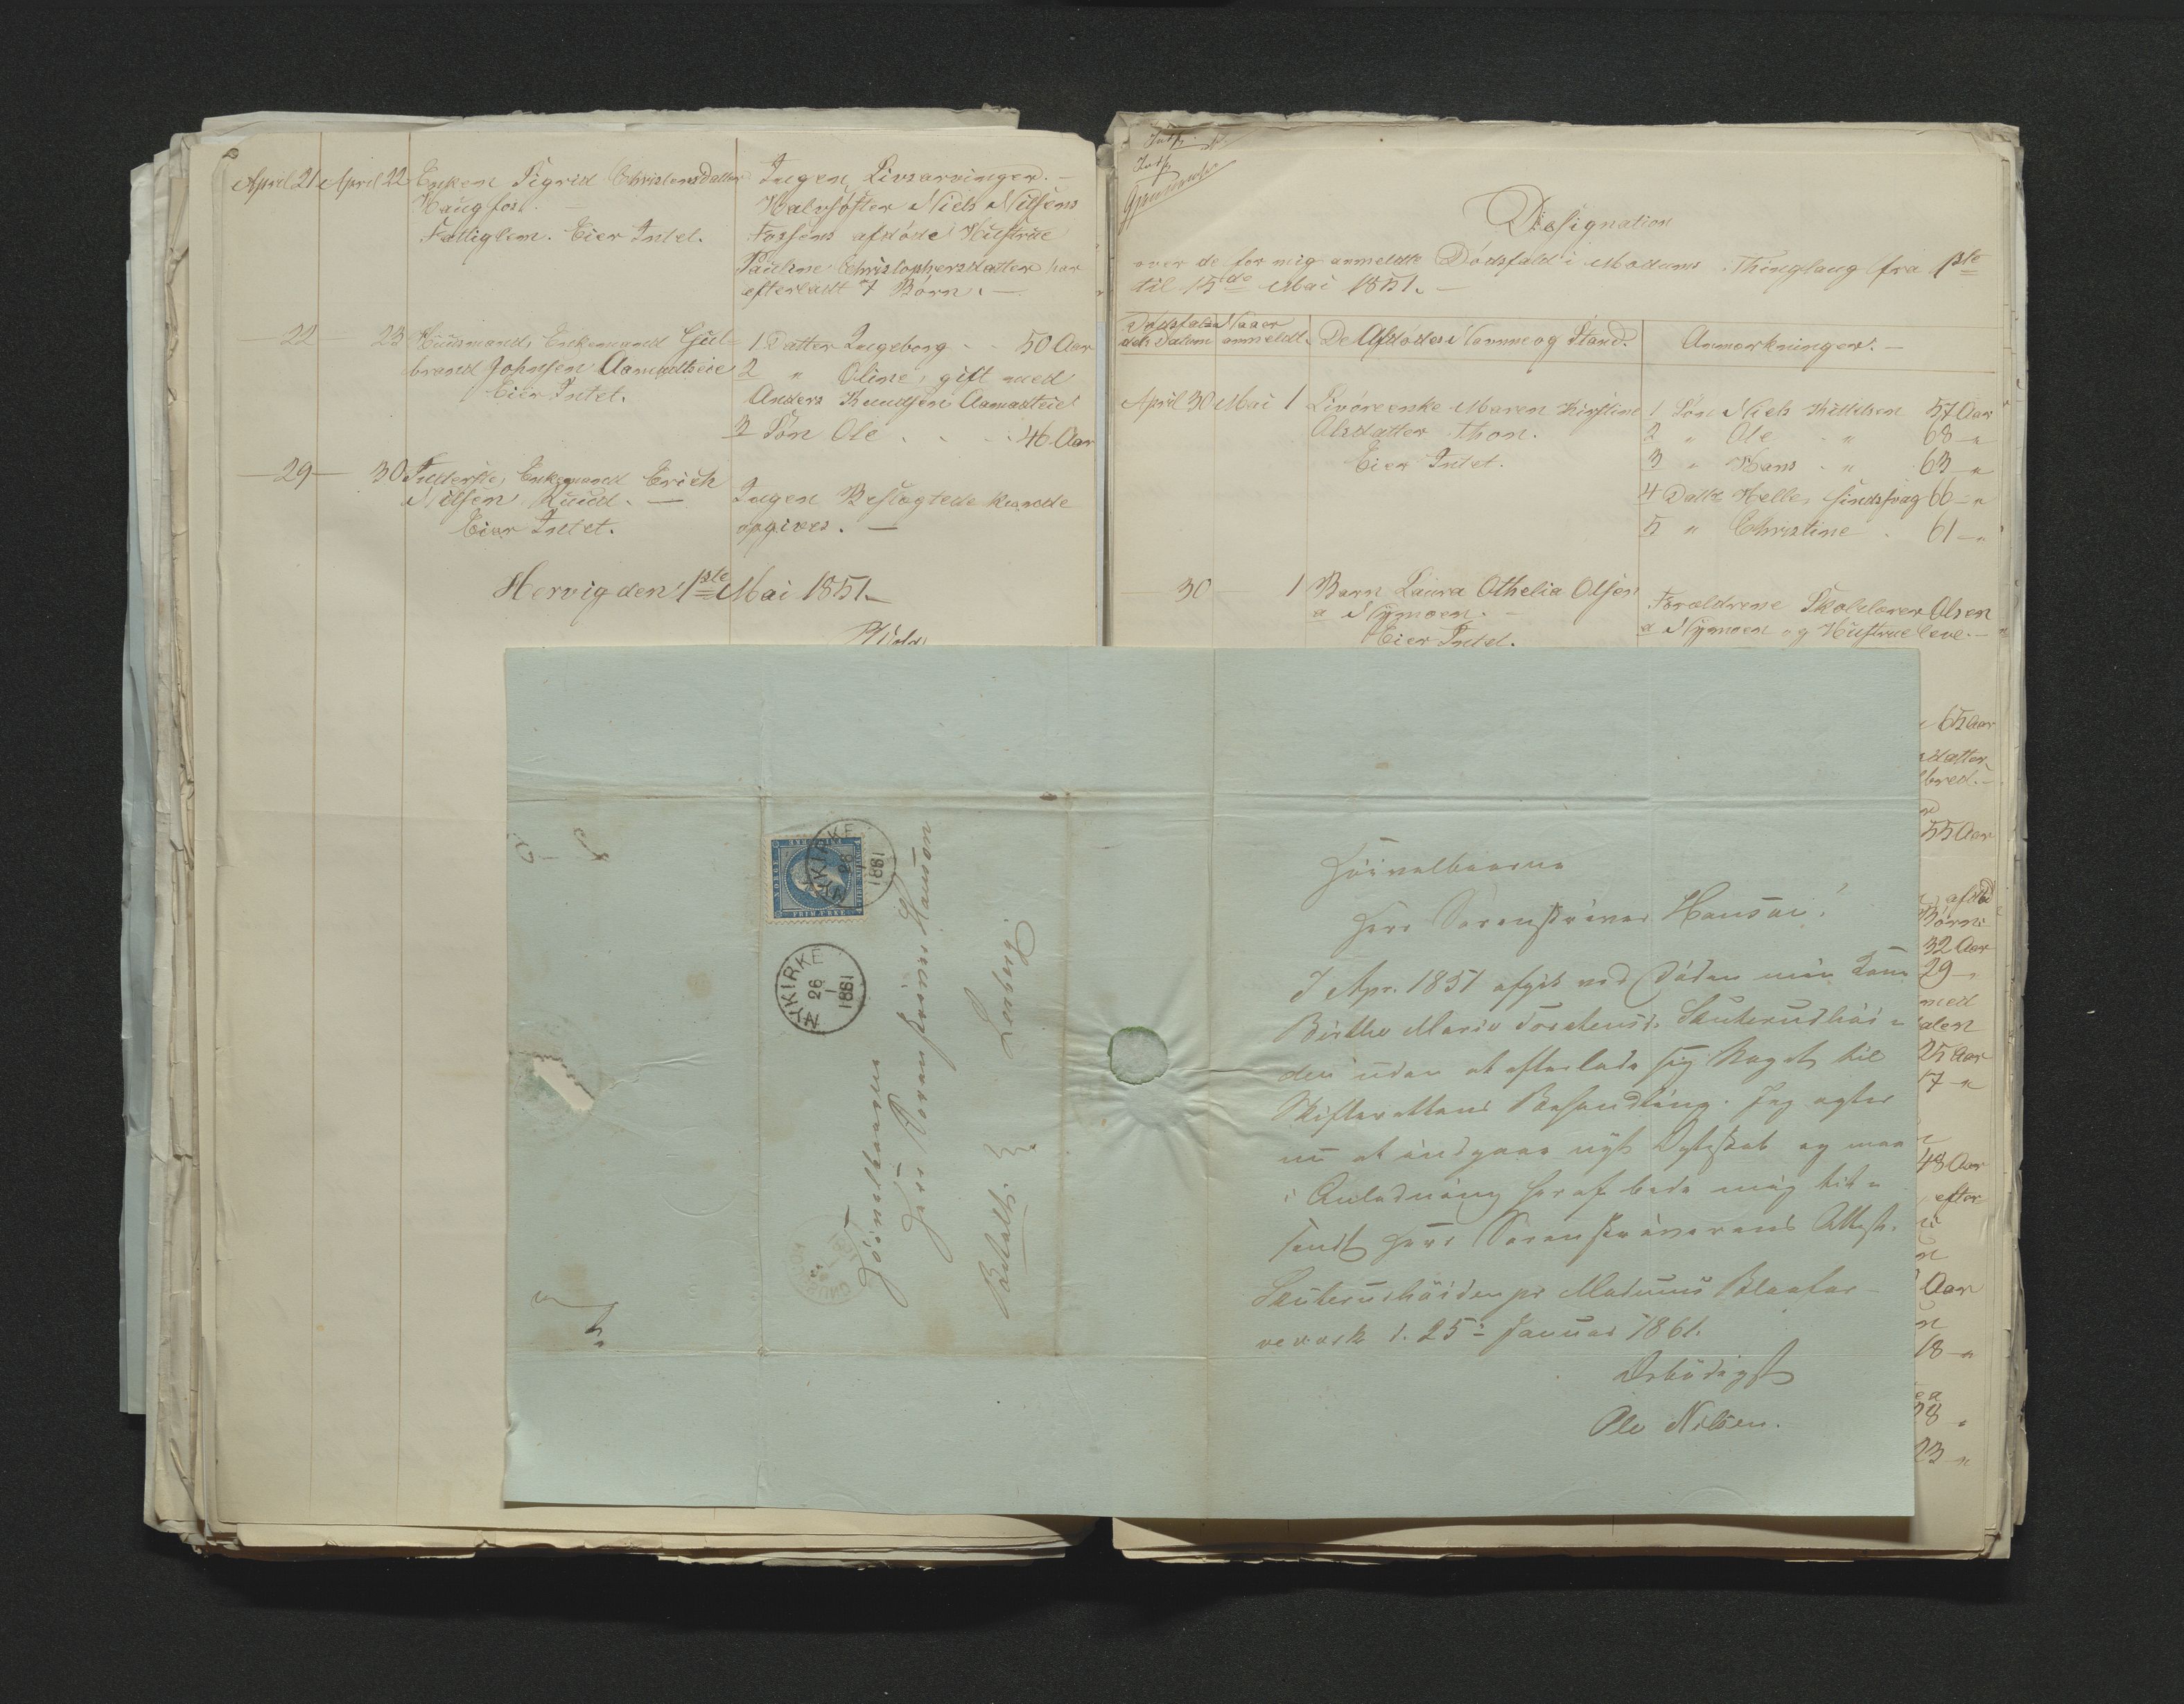 April 21 April 22 Enken Sigrid Christensdatter
Haugfos. —
Fattiglem. Eier Intet.
Ingen Livsarvinger. —
Halvsøster Niels Nilsens
Fossens afdøde Hustrue
Pauline Christophersdatter har
efterladt 7 Børn. —
— 22 — 23 Huusmand, Enkemand Gul-
brand Johnsen Aamodteie
Eier Intet.
1 Datter Ingeborg - - 50 Aar
2 " Oline, gift med
Anders Knudsen Aamodteie
3 Søn Ole . . . 46 Aar
— 29 — 30 Inderste, Enkemand Erich
Nilsen Ruud. —
Eier Intet.
Ingen Beslægtede kunde
opgives. —
Hervig den 1ste Mai 1851. —
Designation
over de for mig anmeldte Dødsfald i Modums Thinglaug fra 1ste
til 15de Mai 1851. —
Dødsfaldets Datum
Naar anmeldt.
De Afdødes Navne og Stand.
Anmærkninger. —
April 30 Mai 1 Livøreenke Maren Kirstine
Olsdatter Thon.
Eier Intet.
1 Søn Niels Kittelsen 57 Aar
2 " Ole - " 68 — "
3 " Hans - " 63 — "
4 Datter Helle, sindssvag 66 — "
5 " Christine . 61 — "
30 1 Barn Laura Othelia Olsen
a Nymoen. —
Eier Intet.
Forældrene Skolelærer Olsen
a Nymoen og Hustrue leve. —
65 Aar
datter
55 Aar
afdød
Børn:
32 Aar
29 — "
med
25 Aar
17 — "
48 Aar
efter
Aar
18 — "
28 "
23 — "
NORGE
FRIMÆRKE
NYKIRKE
26
1
1861
NYKIRKE
26
1
1861
Höivelbaarne
Herr Sorenskriver Hansson
Betalt.
Höivelbaarne
Herr Sorenskriver Hansen!
I Apr. 1851 afgik ved Döden min Kone
Birthe Marie Torstensd. Skuterudhöi-
den uden at efterlade sig Noget til
Skifterettens Behandling. Jeg agter
nu at indgaae nyt Egteskab og maa
i Anledning heraf bede mig til-
sendt Herr Sorenskriverens Attest.
Skuterudhöiden pr Modums Blaafar-
veværk d. 25de Januar 1861.
Ærbödigst
Ole Nilsen.